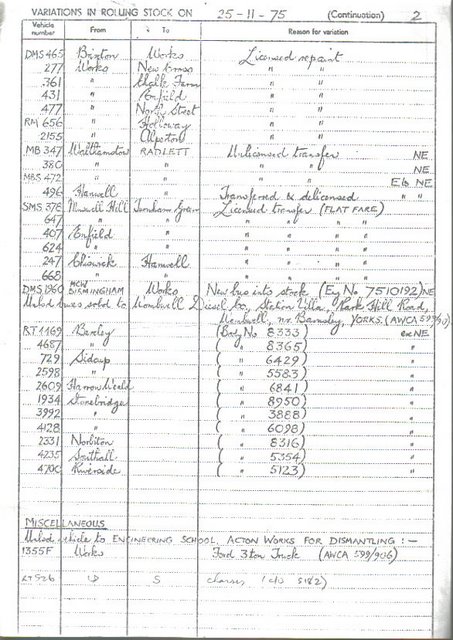 VARIATIONS IN ROLLING STOCK ON 25-11-75 (Continuation) 2
Vehicle number From To Reason for variation
DMS 465 Brixton Works Licensed repaint
277 Works New Cross " "
361 " Chalk Farm " "
431 " Enfield " "
477 " North Street " "
RM 656 " Holloway " "
2155 " Alperton " "
MB 347 Walthamstow RADLETT Unlicensed transfer NE
380 " " " NE
MBS 472 " " " NE
496 Hanwell " Transferred & delicensed " "
SMS 378 Muswell Hill Turnham Green Licensed transfer (FLAT FARE)
647 " " " " "
407 Enfield " " " "
624 " " " " "
247 Chiswick Hanwell " " "
668 " " " " "
DMS 1960 MCW BIRMINGHAM Works New bus into stock (Eng No 7510192) NE
Unlcd buses sold to Wombwell Diesel Co, Station Villa, Park Hill Road,
Wombwell, nr Barnsley, YORKS. (AWCA 597/90)
RT 1169 Bexley (Bod No 8333) ex NE
4687 " ( " 8365) "
729 Sidcup ( " 6429) "
2598 " ( " 5583) "
2609 Harrow Weald ( " 6841) "
1934 Stonebridge ( " 8950) "
3992 " ( " 3888) "
4128 " ( " 6098) "
2331 Norbiton ( " 8316) "
4235 Southall ( " 5354) "
4790 Riverside ( " 5123) "
MISCELLANEOUS
Unlcd vehicle to ENGINEERING SCHOOL, ACTON WORKS FOR DISMANTLING :-
1355F Works Ford 3 ton Truck (AWCA 599/906)